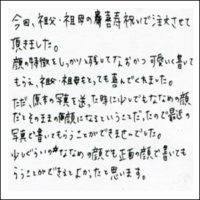 今回、祖父・祖母の喜寿祝いで注文させて
頂きました。
顔の特徴をしっかり残してなおかつ可愛い書いて
もらえ、祖父・祖母もとっても喜んでくれました。
ただ、原本の写真を送った時に少しでもななめの顔
だとそのままの似顔になるということだったので最近の
写真で書いてもらうことができませんでした。
少しぐらいのななめの顔でも正面の顔で書いても
らうことができるとよかったと思います。